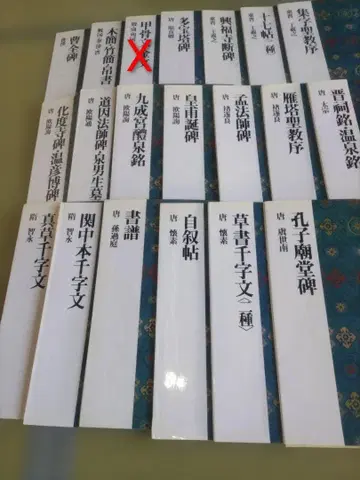 集字聖教序
王羲之
十七帖〈二種〉
王羲之
興福寺断碑
王羲之
多宝塔碑
唐 顔真卿
甲骨
X
木簡・竹簡・帛書
曹全碑
後漢
晋祠銘・温泉銘
唐 太宗
雁塔聖教序
唐 褚遂良
孟法師碑
唐 褚遂良
皇甫誕碑
唐 欧陽詢
九成宮醴泉銘
唐 欧陽詢
道因法師碑・泉男生墓
唐 欧陽通
化度寺碑・温彦博碑
唐 欧陽詢
孔子廟堂碑
唐 虞世南
草書千字文〈二種〉
唐 懐素
自叙帖
唐 懐素
書譜
唐 孫過庭
関中本千字文
隋 智永
真草千字文
隋 智永